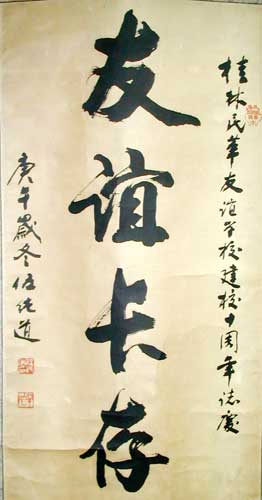 桂林民華友谊学校建校十周年誌慶
友谊长存
庚午歲冬伍纯道